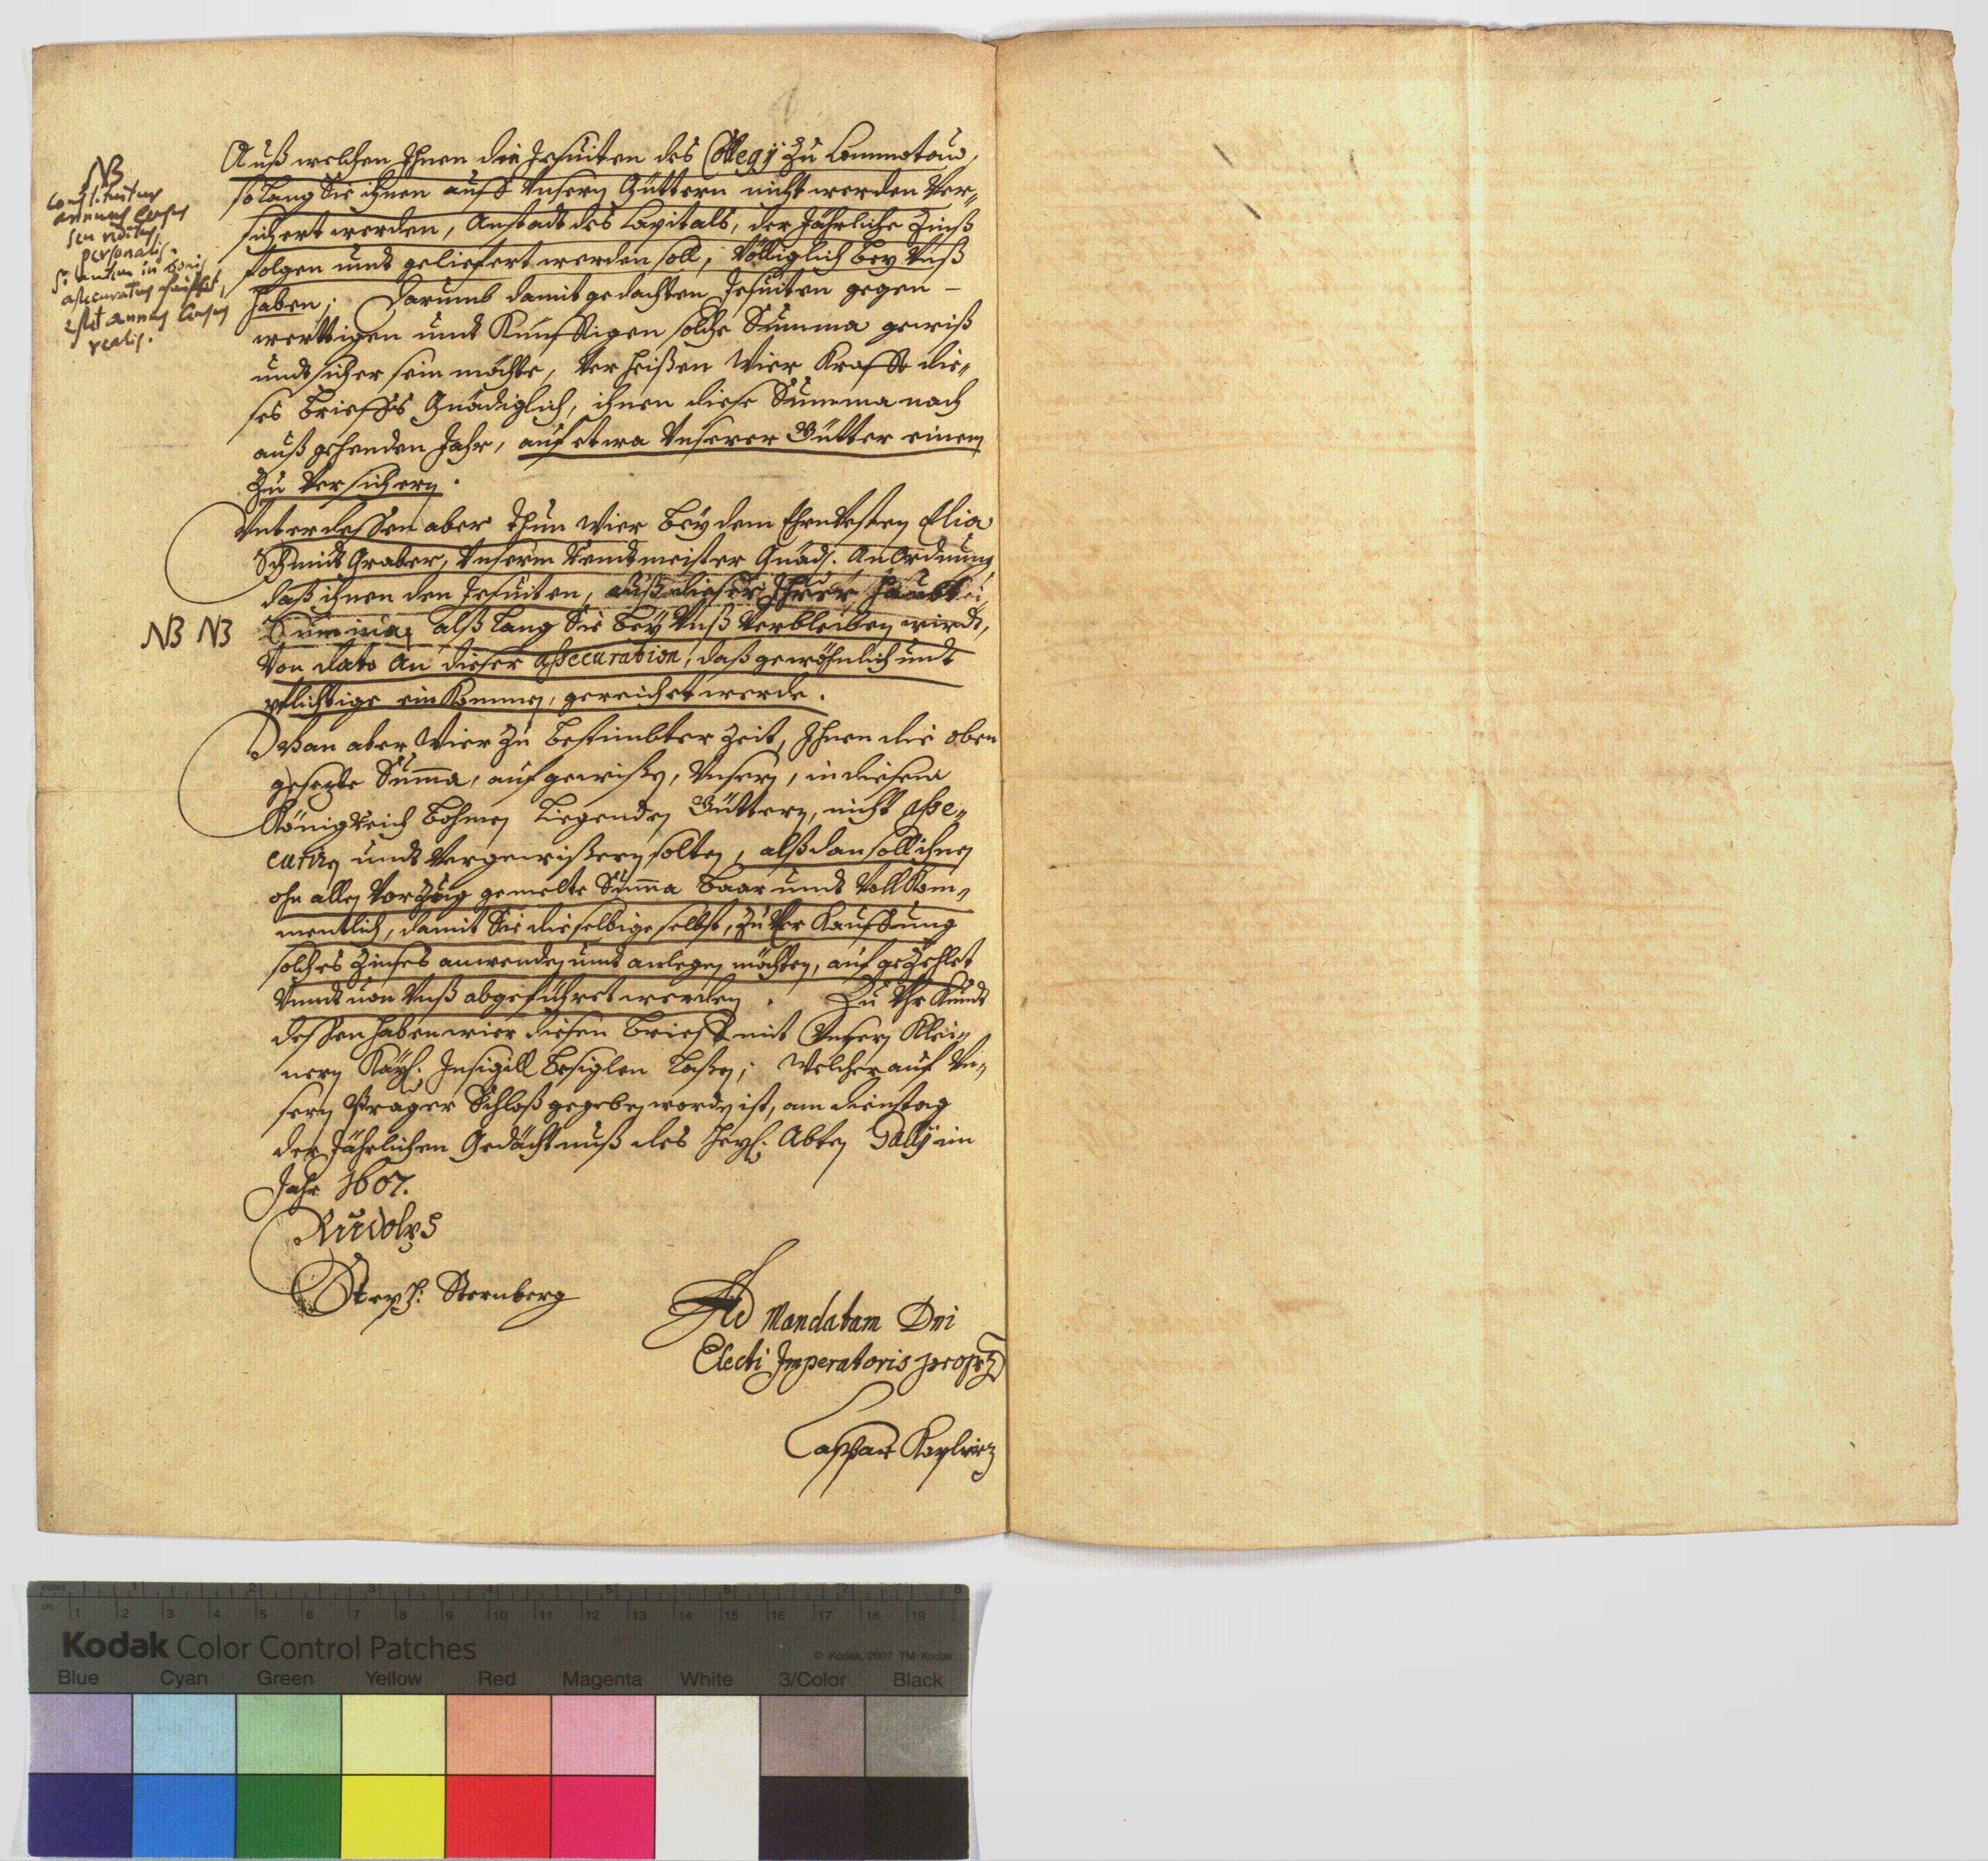 NB
constitutus
annuus census
seu reditus
personalis.
Si autem in bonis
assecuratus fuisset,
esset annuus census
realis.
Auß welchen Ihnen die Jesuiten des Collegij zu Commotau,
so lang Sie ihnen auff Unsern Güttern nicht werden Ver-
sichert werden, Anstadt des Capitals, der Jährliche Zinß
folgen undt geliefert werden soll, Völliglich bey Unß
haben; Darumb damit gedachten Jesuiten gegen-
werttigen undt Künfftigen solche Summa gewiß
undt sicher sein möchte, Verheißen Wier Krafft die-
ses Brieffes Gnädiglich, ihnen diese Summa nach
außgehenden Jahr, auf etwa Unserer Gütter einem
Zu Versichern.
Unterdessen aber thun Wier Bey dem Ehrnvesten Elia
Schmidt Graber, Unserm Rendtmeister Gnäd. Anordnung,
daß ihnen den Jesuiten, auß dieser Ihrer Haubt
NB NB Summa, alß lang Sie Bey Unß Verbleiben wirdt,
Von dato An dieser assecuration, daß gewöhnlich undt
pflichtige einkommen, gereichet werde.
Wan aber Wier zu Bestimbter Zeit, Ihnen die oben
gesezte Summa, auf gewiße, Unsern, in diesem
Königreich Böhmen Liegenden Güttern, nicht asse-
curirn undt Vergewißern solten, alßdan soll ihnen
ohn allen Vorzug gemelte Summa Baar undt Vollkom-
mentlich, damit Sie dieselbige selbst, zu Verkauffung
solches Zinses anwenden undt anlegen möchten, aufgezehlet
Undt von Unß abgeführet werden. Zu Uhrkundt
dessen haben wier diesen Brieff mit Unsern Klei-
nern Kayß: Insigill Besiglen Laßen; Welcher auf Un-
sern Prager Schloß gegeben worden ist, am dienstag
der Jährlichen Gedächtnuß des Heyl: Abten Galli im
Jahr 1607.
Rudolph
Steph: Sternberg
Ad Mandatum Dni
Electi Imperatoris propr
Caspar Kaplirz
inches 1 2 3 4 5 6 7 8
cm 1 2 3 4 5 6 7 8 9 10 11 12 13 14 15 16 17 18 19
Kodak Color Control Patches
© Kodak, 2007 TM: Kodak
Blue Cyan Green Yellow Red Magenta White 3/Color Black